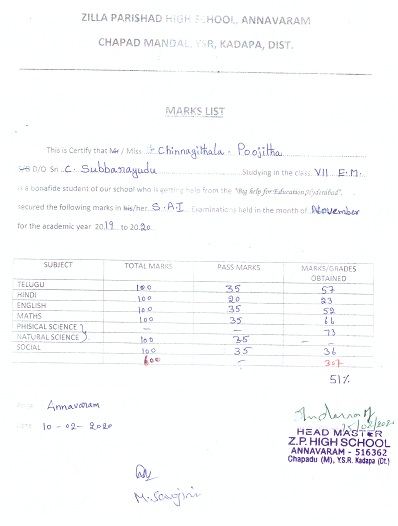 ZILLA PARISHAD HIGH SCHOOL, ANNAVARAM
CHAPAD MANDAL, YSR, KADAPA, DIST.
MARKS LIST
This is Certify that Mr / Miss Chinnagithala. Poojitha
S/O D/O Sri C. Subbarayudu Studying in the class VII E.M.
is a bonafide student of our school who is getting help from the "Big help for Education, Hyderabad".
secured the following marks in his/her S.A.I Examinations held in the month of November
for the academic year 2019 to 2020
SUBJECT TOTAL MARKS PASS MARKS MARKS/GRADES OBTAINED
TELUGU 100 35 57
HINDI 100 20 23
ENGLISH 100 35 52
MATHS 100 35 66
PHISICAL SCIENCE } - - 73
NATURAL SCIENCE } 100 35 - -
SOCIAL 100 35 36
600 - 307
51%
Annavaram
DATE 10-02-2020
HEAD MASTER
Z.P. HIGH SCHOOL
ANNAVARAM - 516362
Chapadu (M), Y.S.R. Kadapa (Dt.)